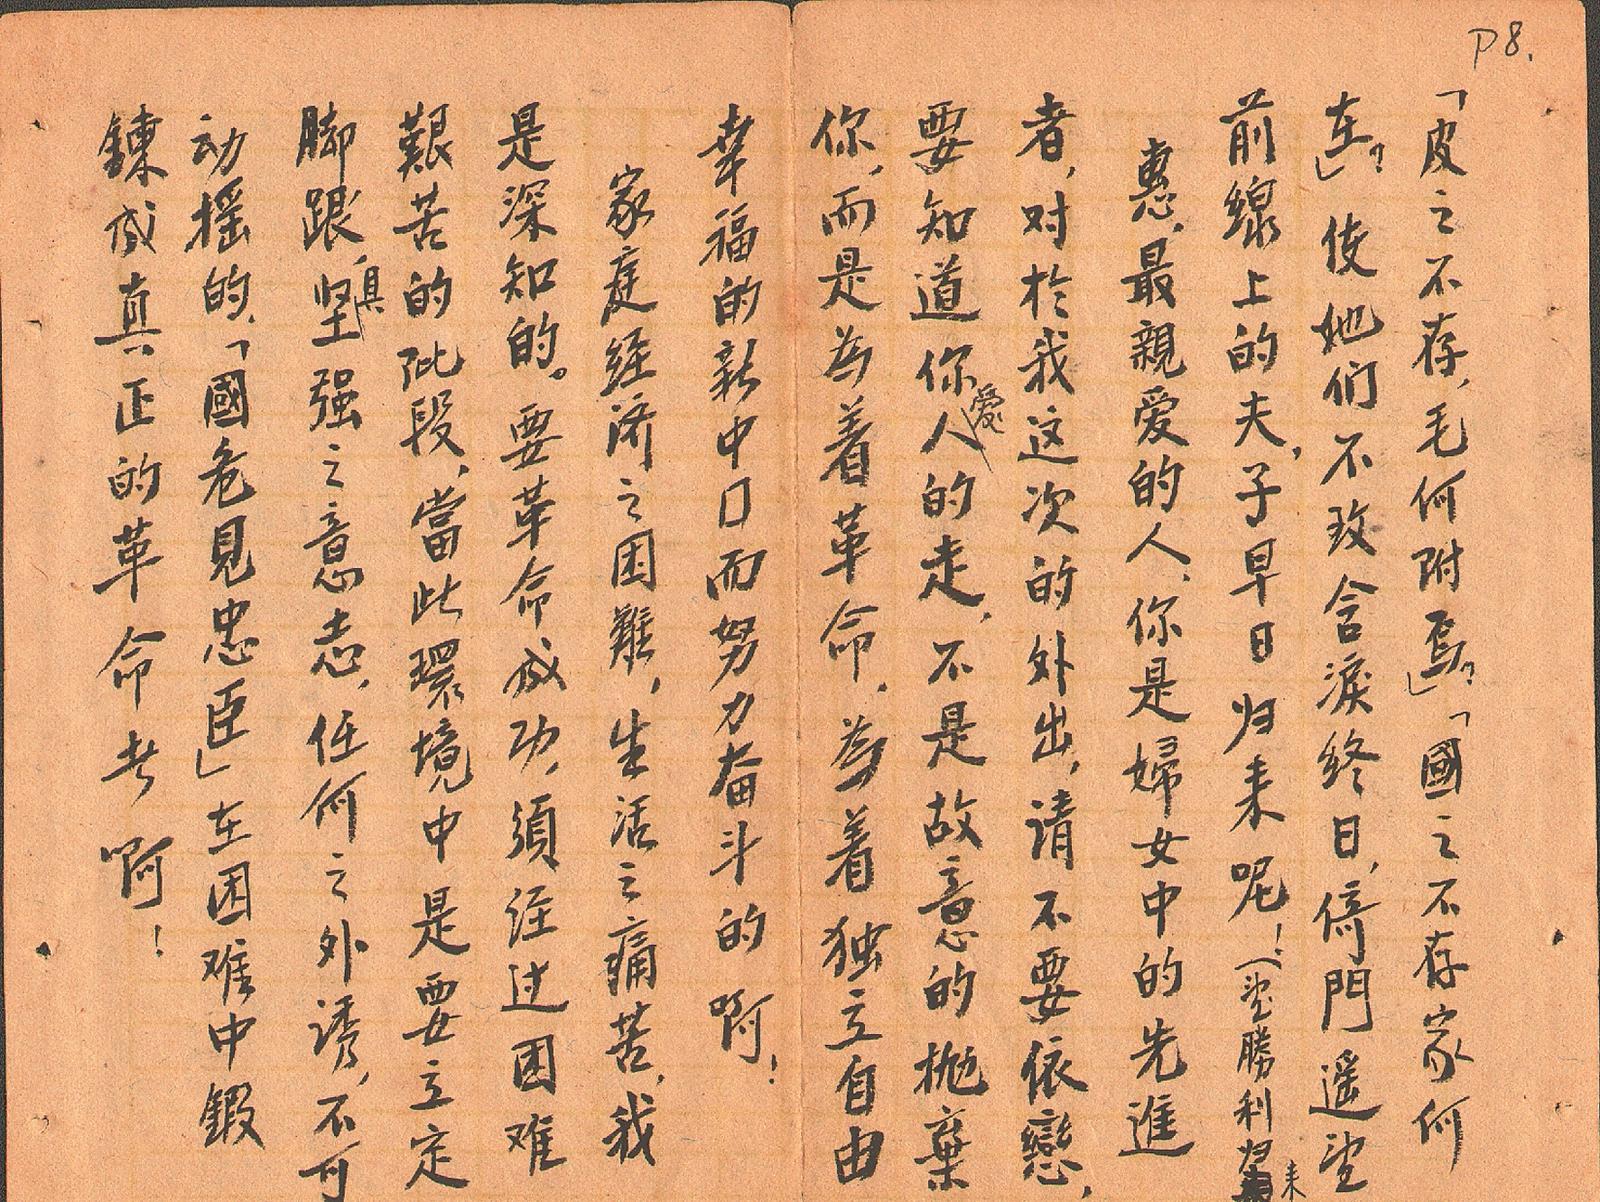 P8.
「皮之不存,毛何附焉?」「國之不存家何
在?」使她们不致含淚终日,倚門遥望
前線上的夫,子早日归来呢!(望勝利归来
惠,最親爱的人,你是婦女中的先進
者,对於我这次的外出,请不要依戀,
要知道你爱人的走,不是故意的抛棄
你,而是為着革命,為着独立自由
幸福的新中口而努力奋斗的啊!
家庭经济之困難,生活之痛苦,我
是深知的。要革命成功,須经过困难
艱苦的阶段,當此環境中是要立定
脚跟,具坚强之意志,任何之外诱,不可
动摇的,「國危見忠臣」在困难中鍛
鍊成真正的革命者啊!